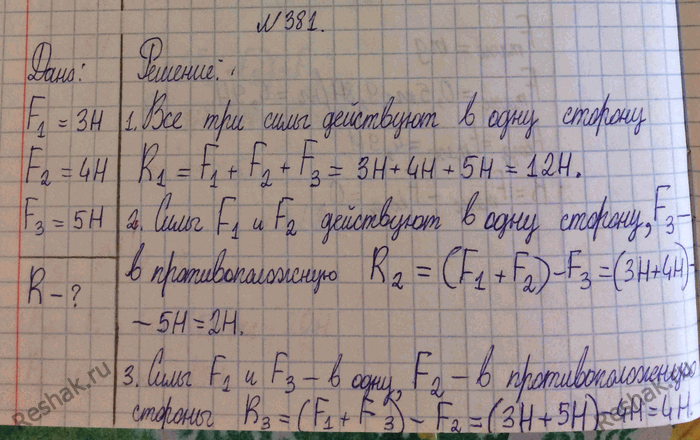 N 381.
Дано: Решение:
F₁ = 3Н 1. Все три силы действуют в одну сторону
F₂ = 4Н R₁ = F₁ + F₂ + F₃ = 3Н + 4Н + 5Н = 12Н.
F₃ = 5Н 2. Силы F₁ и F₂ действуют в одну сторону, F₃ –
R – ? в противоположную R₂ = (F₁ + F₂) – F₃ = (3Н+4Н) –
– 5Н = 2Н.
3. Силы F₁ и F₃ – в одну, F₂ – в противоположную
стороны R₃ = (F₁ + F₃) – F₂ = (3Н + 5Н) – 4Н = 4Н.
Reshak.ru
Reshak.ru